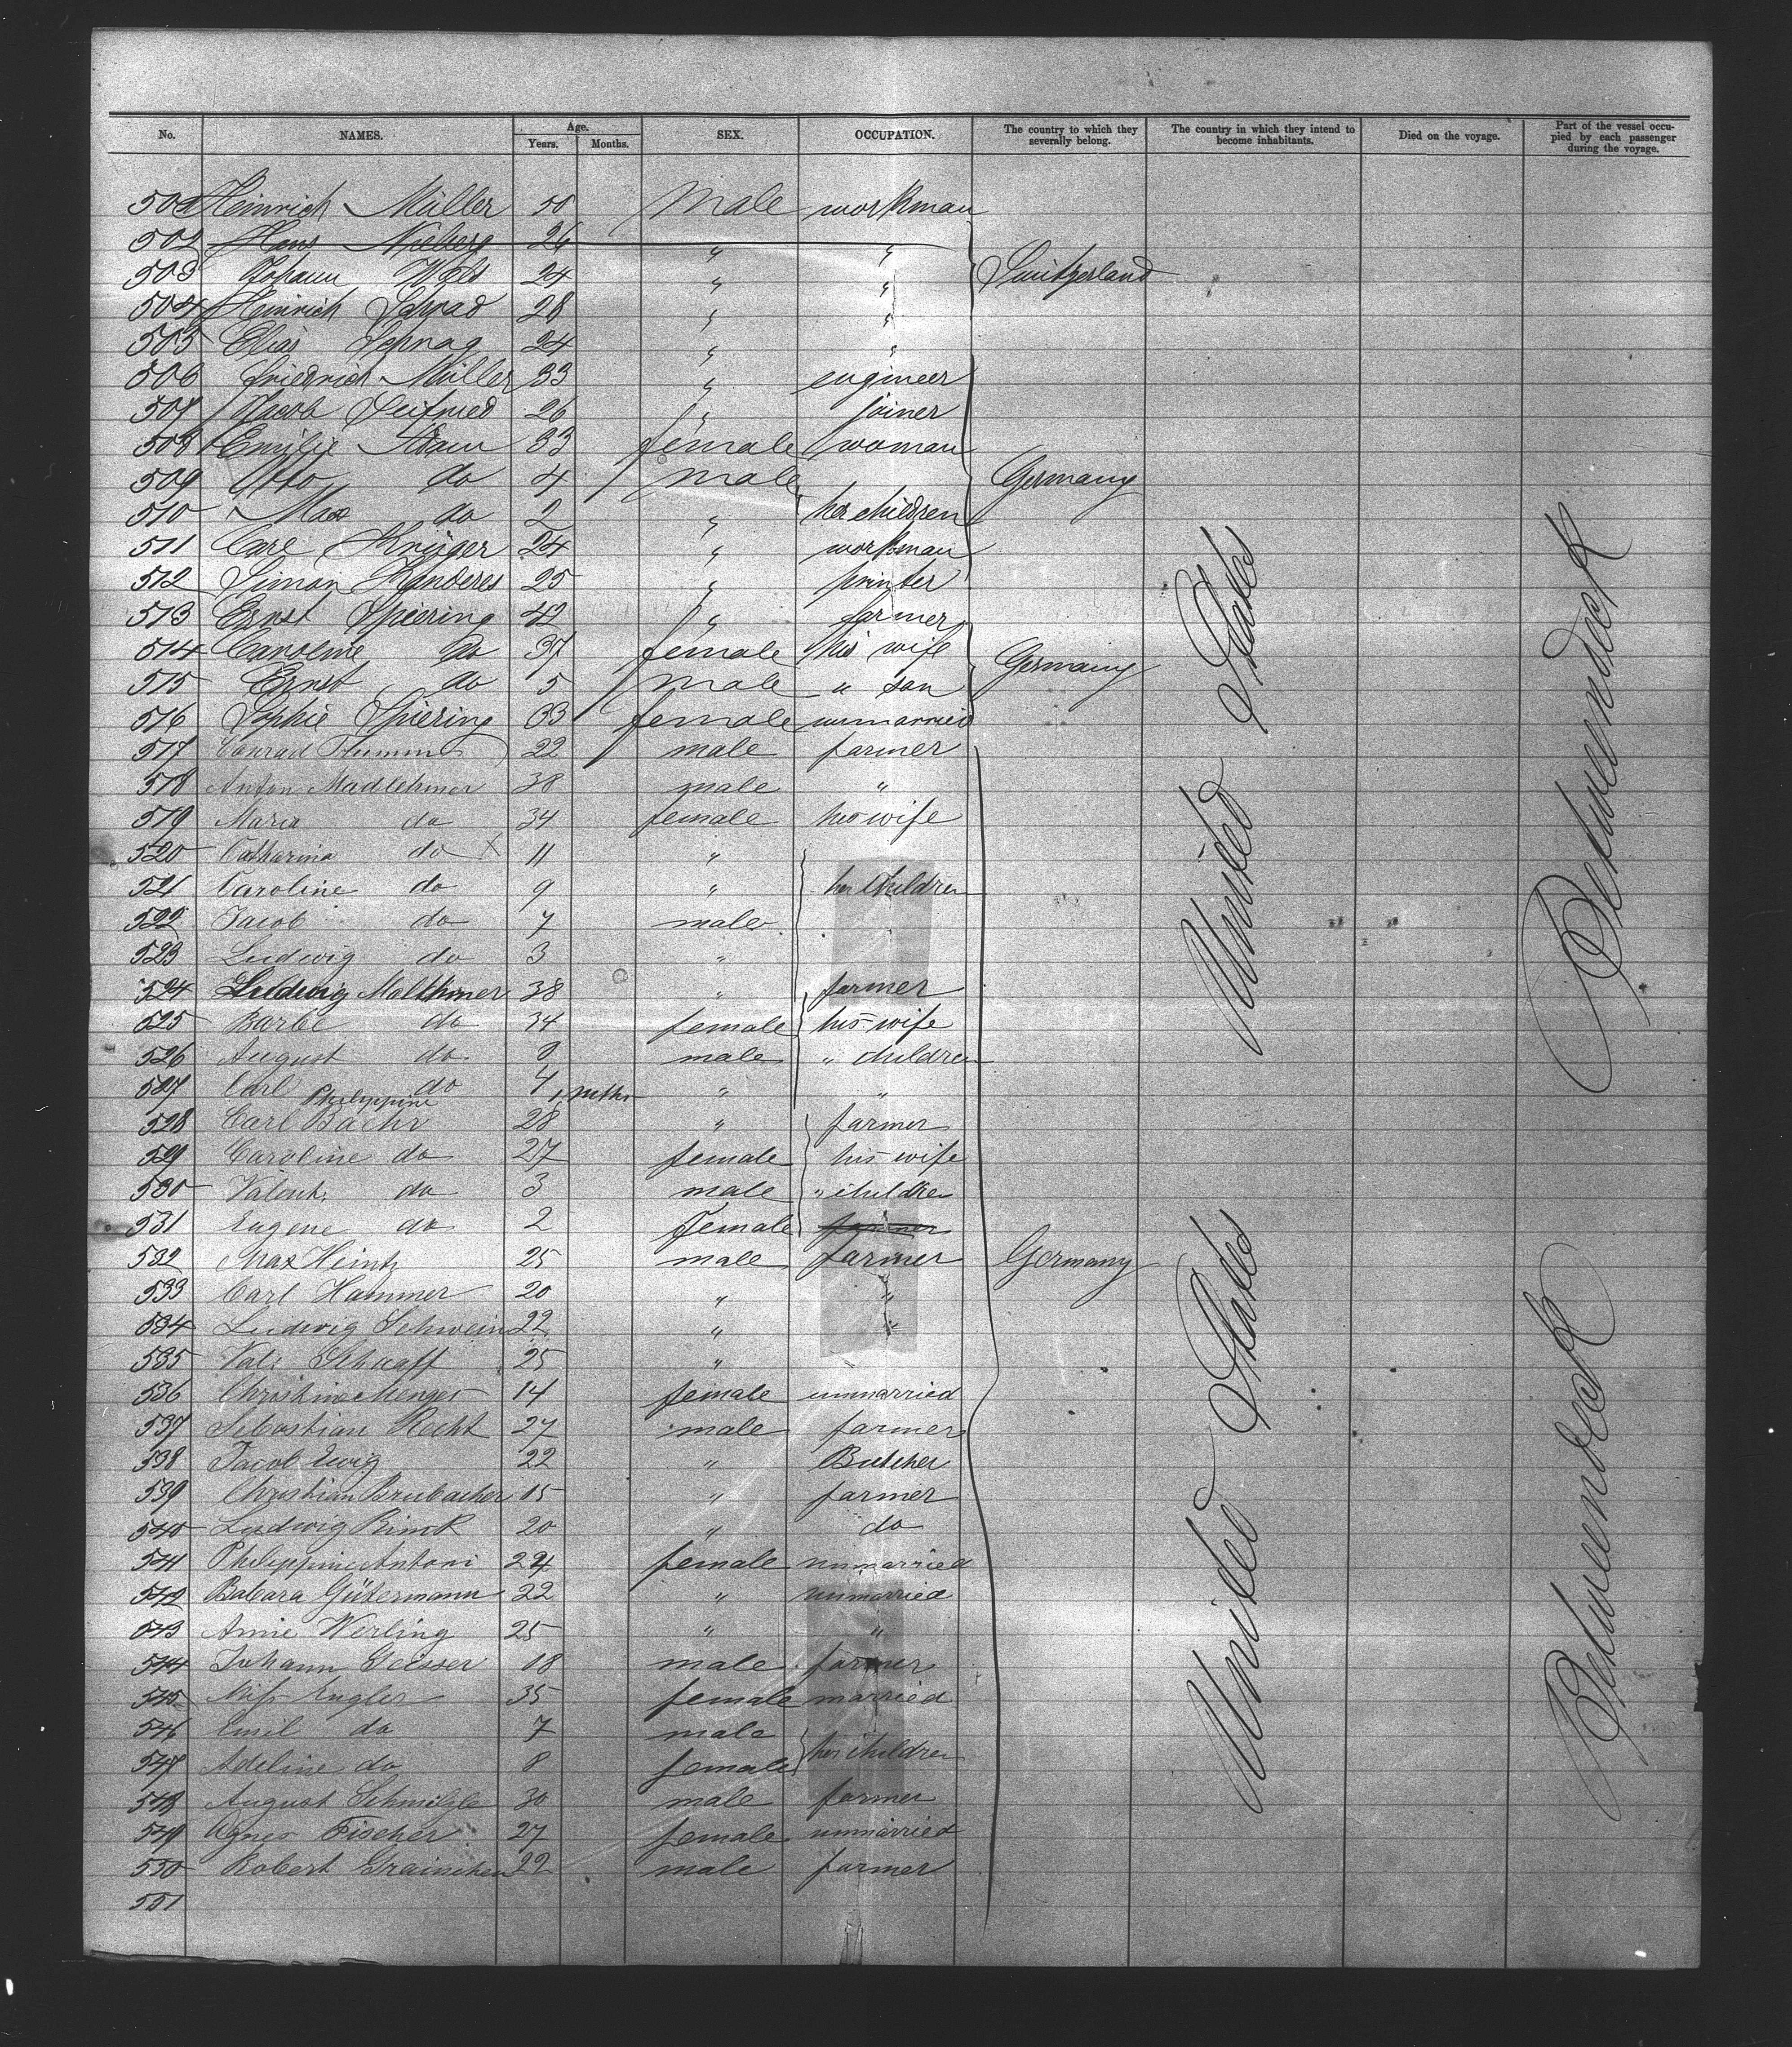 No. NAMES. Age. Years. Months. SEX. OCCUPATION. The country to which they severally belong. The country in which they intend to become inhabitants. Died on the voyage. Part of the vessel occupied by each passenger during the voyage.
501 Heinrich Müller 50 Male workman
502 Hans 26 " "
503 Johann 24 " " Switzerland
504 Heinrich 28 " "
505 Elias 24 " "
506 Friedrich Müller 33 " engineer
507 Jacob Seifried 26 " joiner
508 Emilie Adam 33 female woman
509 Otto do 4 male Germany
510 Max do 2 " her children
511 Carl Krüger 24 " workman
512 Simon Kanderes 25 " printer
513 Ernst Spiering 42 " farmer
514 Caroline do 37 female his wife Germany
515 Ernst do 5 male " son
516 Sophie Spiering 33 female unmarried
517 Conrad 22 male farmer
518 Anton Madlehmer 38 male "
519 Maria do 34 female his wife
520 Catharina do X 11 "
521 Caroline do 9 " her children
522 Jacob do 7 male
523 Ludwig do 3 "
524 Ludwig 38 " farmer
525 Barbe do 34 female his wife
526 August do male " children
527 Carl do 4 mths " "
Philippine
528 Carl Bachr 28 " farmer
529 Caroline do 27 female his wife
530 Valent. do 3 male " children
531 Eugene do 2 Female farmer
532 Max Heintz 25 male farmer Germany
533 Carl Hammer 20 " "
534 Ludwig Schwein 22 " "
535 Val. Schaaff 25 "
536 Christine Menges 14 female unmarried
537 Sebastian Recht 27 male farmer
538 Jacob Ewig 22 " Butcher
539 Christian Brubacher 15 " farmer
540 Ludwig Binok 20 " do
541 Philippine Antoni 24 female unmarried
542 Babara Gütermann 22 " unmarried
543 Annie Werling 25 " "
544 Johann 18 male farmer
545 Miss Engler 35 female married
546 Emil do 7 male
547 Adeline do 8 female her children
548 August Schmilgle 30 male farmer
549 Agnes Fischer 27 female unmarried
550 Robert 22 male farmer
551
United States
United States
Betweendeck
Betweendeck